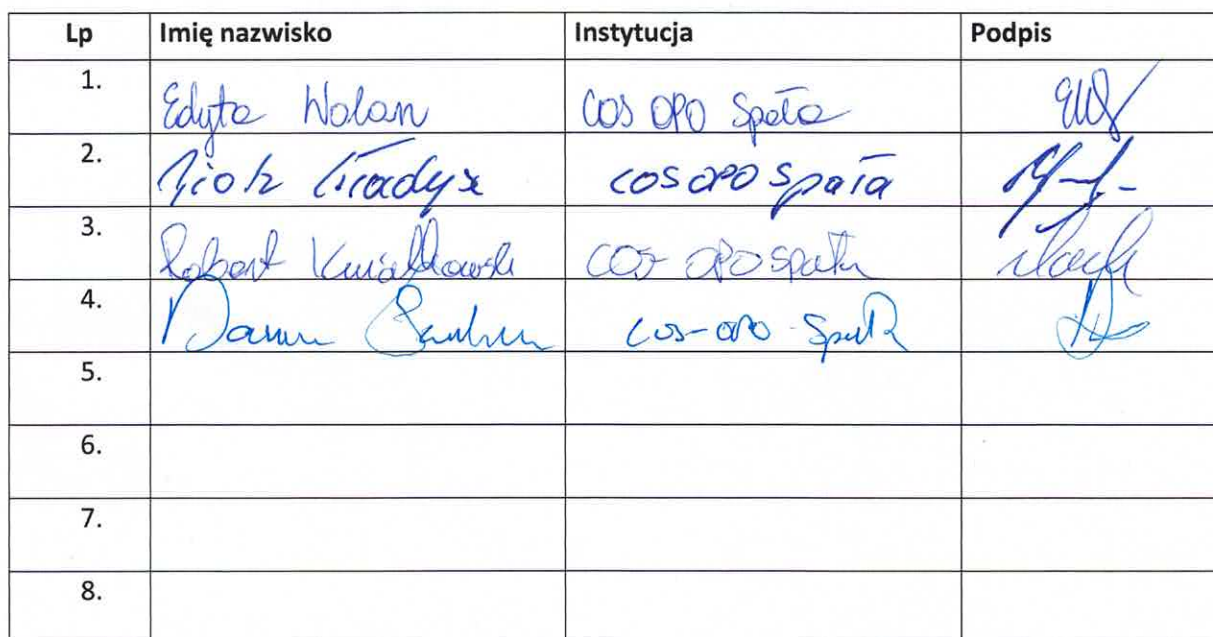 Lp Imię nazwisko Instytucja Podpis
1. Edyta Wolan COS OPO Spała
2. Piotr COS OPO Spała
3. Robert Kwiatkowski COS OPO Spała
4. COS-OPO Spała
5.
6.
7.
8.